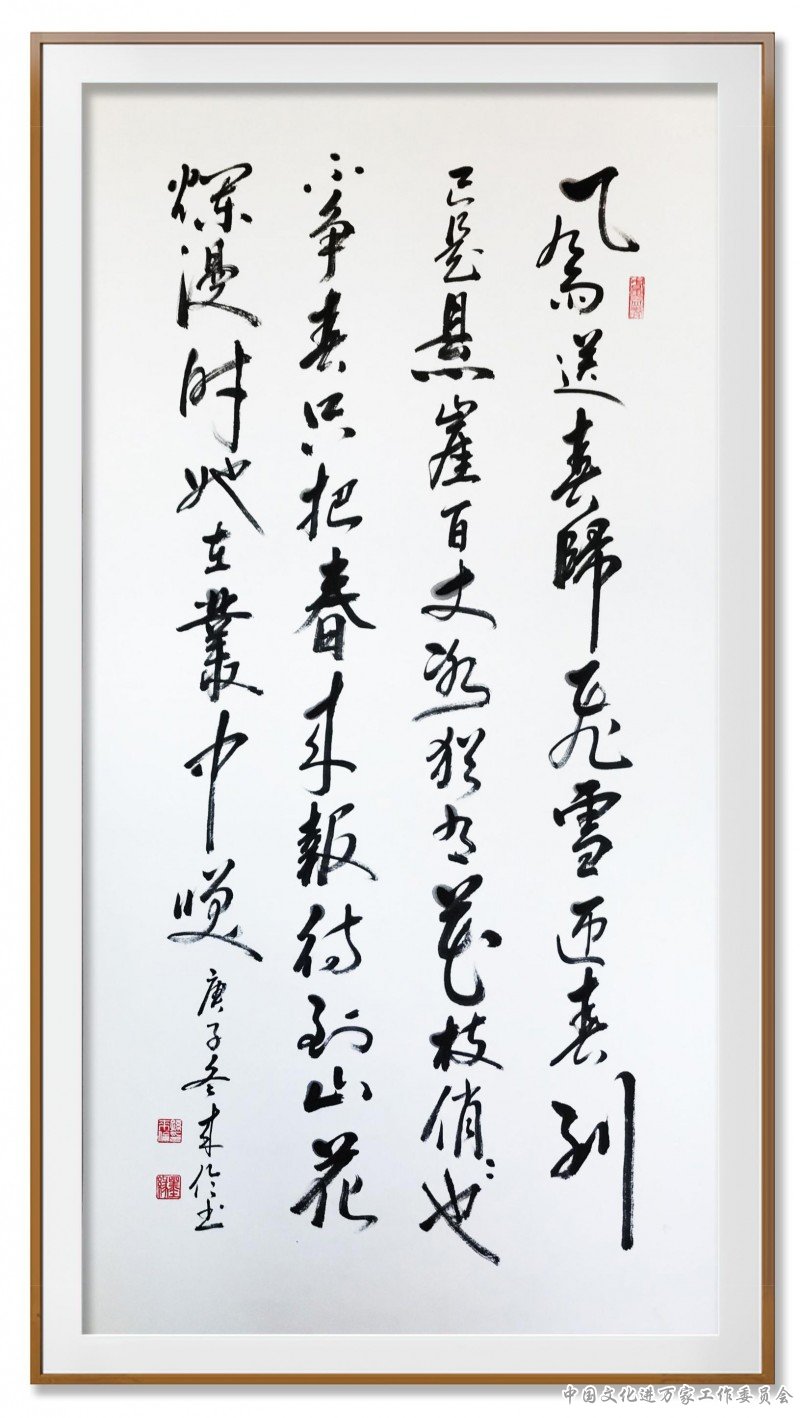 风雨送春歸飛雪迎春到
已是悬崖百丈冰犹有花枝俏〻也
不争春只把春来報待到山花
爛漫时她在叢中笑
庚子冬来书
中国文化进万家工作委员会